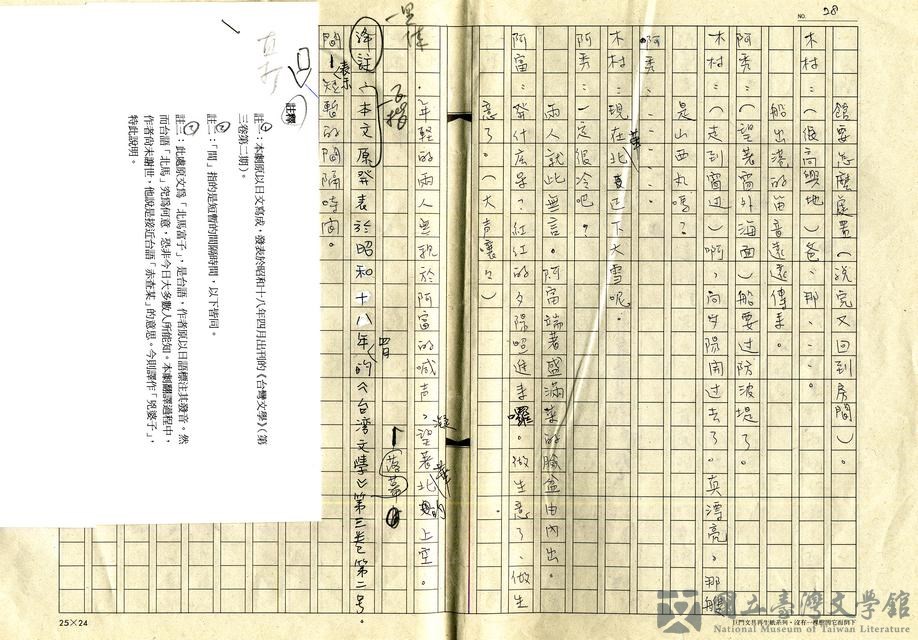 NO. 28
館要怎麼處置(說完又回到房間)。
木村:(很高興地)爸、那、、、。
船出港的笛音遠遠傳來。
阿秀:(望著窗外海面)船要過防波堤了。
木村:(走到窗邊)啊,向夕陽開過去了。真漂亮,那艘
是山西丸嗎?
阿秀:、、、、、、
木村:現在華北正下大雪呢。
阿秀:一定很冷吧?
兩人就此無言。阿富端著盛滿菜的臉盆由內出。
阿富:發什麼呆?紅紅的夕陽照進來囉。做生意了、做生
意了。(大声嚷嚷)
年輕的兩人無視於阿富的喊声,凝望著華北的上空。
落幕
譯註 本文原發表於昭和十八年四月的《台湾文學》第三卷第二号。
間 表示短暫的間隔時間。
註釋
註一:本劇原以日文寫成,發表於昭和十八年四月出刊的《台灣文學》(第
三卷第二期)。
註二:「間」指的是短暫的間隔時間,以下皆同。
註三:此處原文為「北馬富子」,是台語,作者原以日語標注其發音。然
而台語「北馬」究為何意,恐非今日大多數人所能知。本劇翻譯過程中,
作者尚未謝世,他說是接近台語「赤查某」的意思。今則譯作「兇婆子」,
特此說明。
25×24
國立臺灣文學館
National Museum of Taiwan Literature